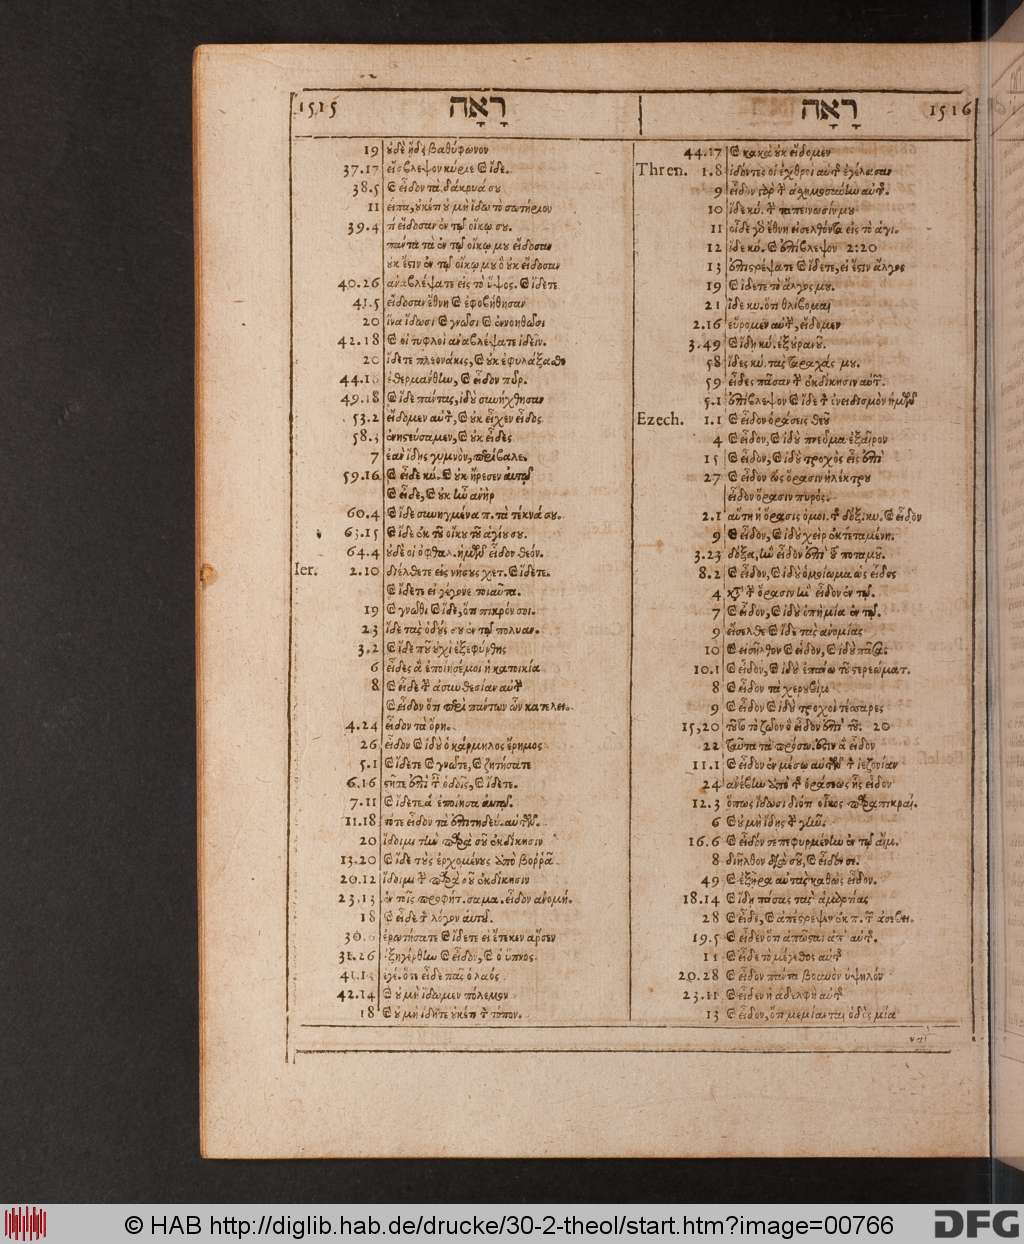 1515 רָאָה
רָאָה 1516
19 ἐδὲ ἤδ βαθύφωνον
37.17 εἴσβλεψον κύριε ϗ ἴδε.
38.5 ϗ εἶδον τὰ δάκρυά σου
11 εἶπα, οὐκέτι οὐ μὴ ἴδω τὸ σωτήριον
39.4 τί εἴδοσαν ἐν τῷ οἴκῳ σου.
πάντα τὰ ἐν τῷ οἴκῳ μου εἴδοσαν
οὐκ ἔστιν ἐν τῷ οἴκῳ μου ὃ οὐκ εἴδοσαν
40.26 ἀναβλέψατε εἰς τὸ ὕψος. ϗ ἴδετε
41.5 εἴδοσαν ἔθνη ϗ ἐφοβήθησαν
20 ἵνα ἴδωσι ϗ γνῶσι ϗ ἐννοηθῶσι
42.18 ϗ οἱ τυφλοὶ ἀναβλέψατε ἰδεῖν.
20 ἴδετε πλεονάκις, ϗ οὐκ ἐφυλάξασθε
44.1 ἐθερμάνθην, ϗ εἶδον πῦρ.
49.18 ϗ ἴδε πάντας, ἰδοὺ συνήχθησαν
53.2 εἴδομεν αὐτ, ϗ οὐκ εἶχεν εἶδος
58.3 ἐνηστεύσαμεν, ϗ οὐκ εἶδες
7 ἐὰν ἴδῃς γυμνὸν, περίβαλε.
59.16 ϗ εἶδε κύ. ϗ οὐκ ἤρεσεν αὐτῷ
ϗ εἶδε, ϗ οὐκ ἦν ἀνὴρ
60.4 ϗ ἴδε συνηγμένα π. τὰ τέκνά σου.
63.15 ϗ ἴδε ἐκ τοῦ οἴκου τοῦ ἁγίου σου.
64.4 οὐδὲ οἱ ὀφθαλ. ἡμῶν εἶδον θεόν.
Ier. 2.10 διέλθετε εἰς νήσους χετ. ϗ ἴδετε.
ϗ ἴδετε εἰ γέγονε τοιαῦτα.
19 ϗ γνῶθι ϗ ἴδε, ὅτι πικρόν σοι.
23 ἴδε τὰς ὁδούς σου ἐν τῷ πολυαν.
3.2 ϗ ἴδε ποῦ οὐχὶ ἐξεφύρθης
6 εἶδες ἃ ἐποίησέ μοι ἡ κατοικία
8 ϗ εἶδε τ ἀσυνθεσίαν αὐτ
ϗ εἶδον ὅτι περὶ πάντων ὧν κατελει.
4.24 εἶδον τὰ ὄρη.
26 εἶδον ϗ ἰδοὺ ὁ κάρμηλος ἔρημος
5.1 ϗ ἴδετε ϗ γνῶτε, ϗ ζητήσατε
6.16 στῆτε ἐπὶ τ ὁδοῖς, ϗ ἴδετε.
7.11 ϗ ἴδετε ἃ ἐποίησα αὐτῷ.
11.18 τότε εἶδον τὰ ἐπιτηδεύ. αὐτῶν.
20 ἴδοιμι τὴν παρὰ σοῦ ἐκδίκησιν
13.20 ϗ ἴδε τοὺς ἐρχομένους ἀπὸ βοῤῥᾶ
20.12 ἴδοιμι τ παρὰ σοῦ ἐκδίκησιν
23.13 ἐν τοῖς προφήτ. σαμα. εἶδον ἀνομή.
18 ϗ εἶδε τ λόγον αὐτοῦ.
30. ἐρωτήσατε ϗ ἴδετε εἰ ἔτεκεν ἄρσεν
31.26 ἐξηγέρθην ϗ εἶδον, ϗ ὁ ὕπνος
41.13 ἐγέ. ὅτε εἶδε πᾶς ὁ λαός
42.14 ϗ οὐ μὴ ἴδωμεν πόλεμον
18 ϗ οὐ μὴ ἴδητε οὐκέτι τ τόπον.
44.17 ϗ κακὰ οὐκ εἴδομεν
Thren. 1.8 ἰδόντες οἱ ἐχθροὶ αὐτ ἐγέλασαν
9 εἶδον γὰρ τ ἀσχημοσύνην αὐτ.
10 ἴδε κύ. τ ταπείνωσίν μου
11 οἶδε γὸ ἔθνη εἰσελθόντα εἰς τὸ ἁγί.
12 ἴδε κύ. ϗ ἐπίβλεψον 2:20
13 ἐπιστρέψατε ϗ ἴδετε, εἰ ἔστιν ἄλγος
19 ϗ ἴδετε τὸ ἄλγος μου.
21 ἴδε κυ. ὅτι θλίβομαι
2.16 εὕρομεν αὐτ, εἴδομεν
3.49 ϗ ἴδῃ κύ. ἐξ οὐρανοῦ.
58 ἴδες κύ. τὰς ταραχάς μου.
59 εἶδες πᾶσαν τ ἐκδίκησιν αὐτ.
5.1 ἐπίβλεψον ϗ ἴδε τ ὀνειδισμὸν ἡμῶν
Ezech. 1.1 ϗ εἶδον ὁράσεις θεοῦ
4 ϗ εἶδον, ϗ ἰδοὺ πνεῦμα ἐξαῖρον
15 ϗ εἶδον, ϗ ἰδοὺ τροχὸς εἷς ἐπὶ
27 ϗ εἶδον ὡς ὅρασιν ἠλέκτρου
εἶδον ὅρασιν πυρὸς.
2.1 αὕτη ἡ ὅρασις ὁμοι. τ δόξ. κυ. ϗ εἶδον
9 ϗ εἶδον, ϗ ἰδοὺ χεὶρ ἐκτεταμένη.
3.23 δόξα, ἣν εἶδον ἐπὶ τοῦ ποταμοῦ.
8.2 ϗ εἶδον, ϗ ἰδοὺ ὁμοίωμα ὡς εἶδος
4 κατὰ τ ὅρασιν ἣν εἶδον ἐν τῷ.
7 ϗ εἶδον, ϗ ἰδοὺ ὀπὴ μία ἐν τῷ.
9 εἴσελθε ϗ ἴδε τὰς ἀνομίας
10 ϗ εἰσῆλθον ϗ εἶδον, ϗ ἰδοὺ πᾶσα.
10.1 ϗ εἶδον, ϗ ἰδοὺ ἐπάνω τοῦ στερεώματ.
8 ϗ εἶδον τὰ χερουβὶμ
9 ϗ εἶδον ϗ ἰδοὺ τροχοὶ τέσσαρες
15,20 τοῦτο τὸ ζῶον ὃ εἶδον ἐπὶ τοῦ. 20
22 ταῦτα τὰ πρόσω. ἐστιν ἃ εἶδον
11.1 ϗ εἶδον ἐν μέσῳ αὐτῶν τ ἰεζονίαν
24 ἀνέβην ἀπὸ τ ὁράσεως ἧς εἶδον
12.3 ὅπως ἴδωσι διότι οἶκος παραπικραί.
6 ϗ οὐ μὴ ἴδῃς τ γῆν.
16.6 ϗ εἶδόν σε πεφυρμένην ἐν τῷ αἵμ.
8 διῆλθον διὰ σοῦ, ϗ εἶδόν σε.
49 ϗ ἐξῆρα αὐτὰς καθὼς εἶδον.
18.14 ϗ ἴδῃ πάσας τὰς ἁμαρτίας
28 ϗ εἶδε, ϗ ἀπέστρεψεν ἐκ π. τ ἀσεβει.
19.5 ϗ εἶδεν ὅτι ἀπῶσται ἀπ' αὐτ.
11 ϗ εἶδε τὸ μέγεθος αὐτ
20.28 ϗ εἶδον πάντα βουνὸν ὑψηλόν
23.11 ϗ εἶδεν ἡ ἀδελφὴ αὐτ
13 ϗ εἶδον, ὅτι μεμίανται ὁδὸς μία
© HAB http://diglib.hab.de/drucke/30-2-theol/start.htm?image=00766
DFG